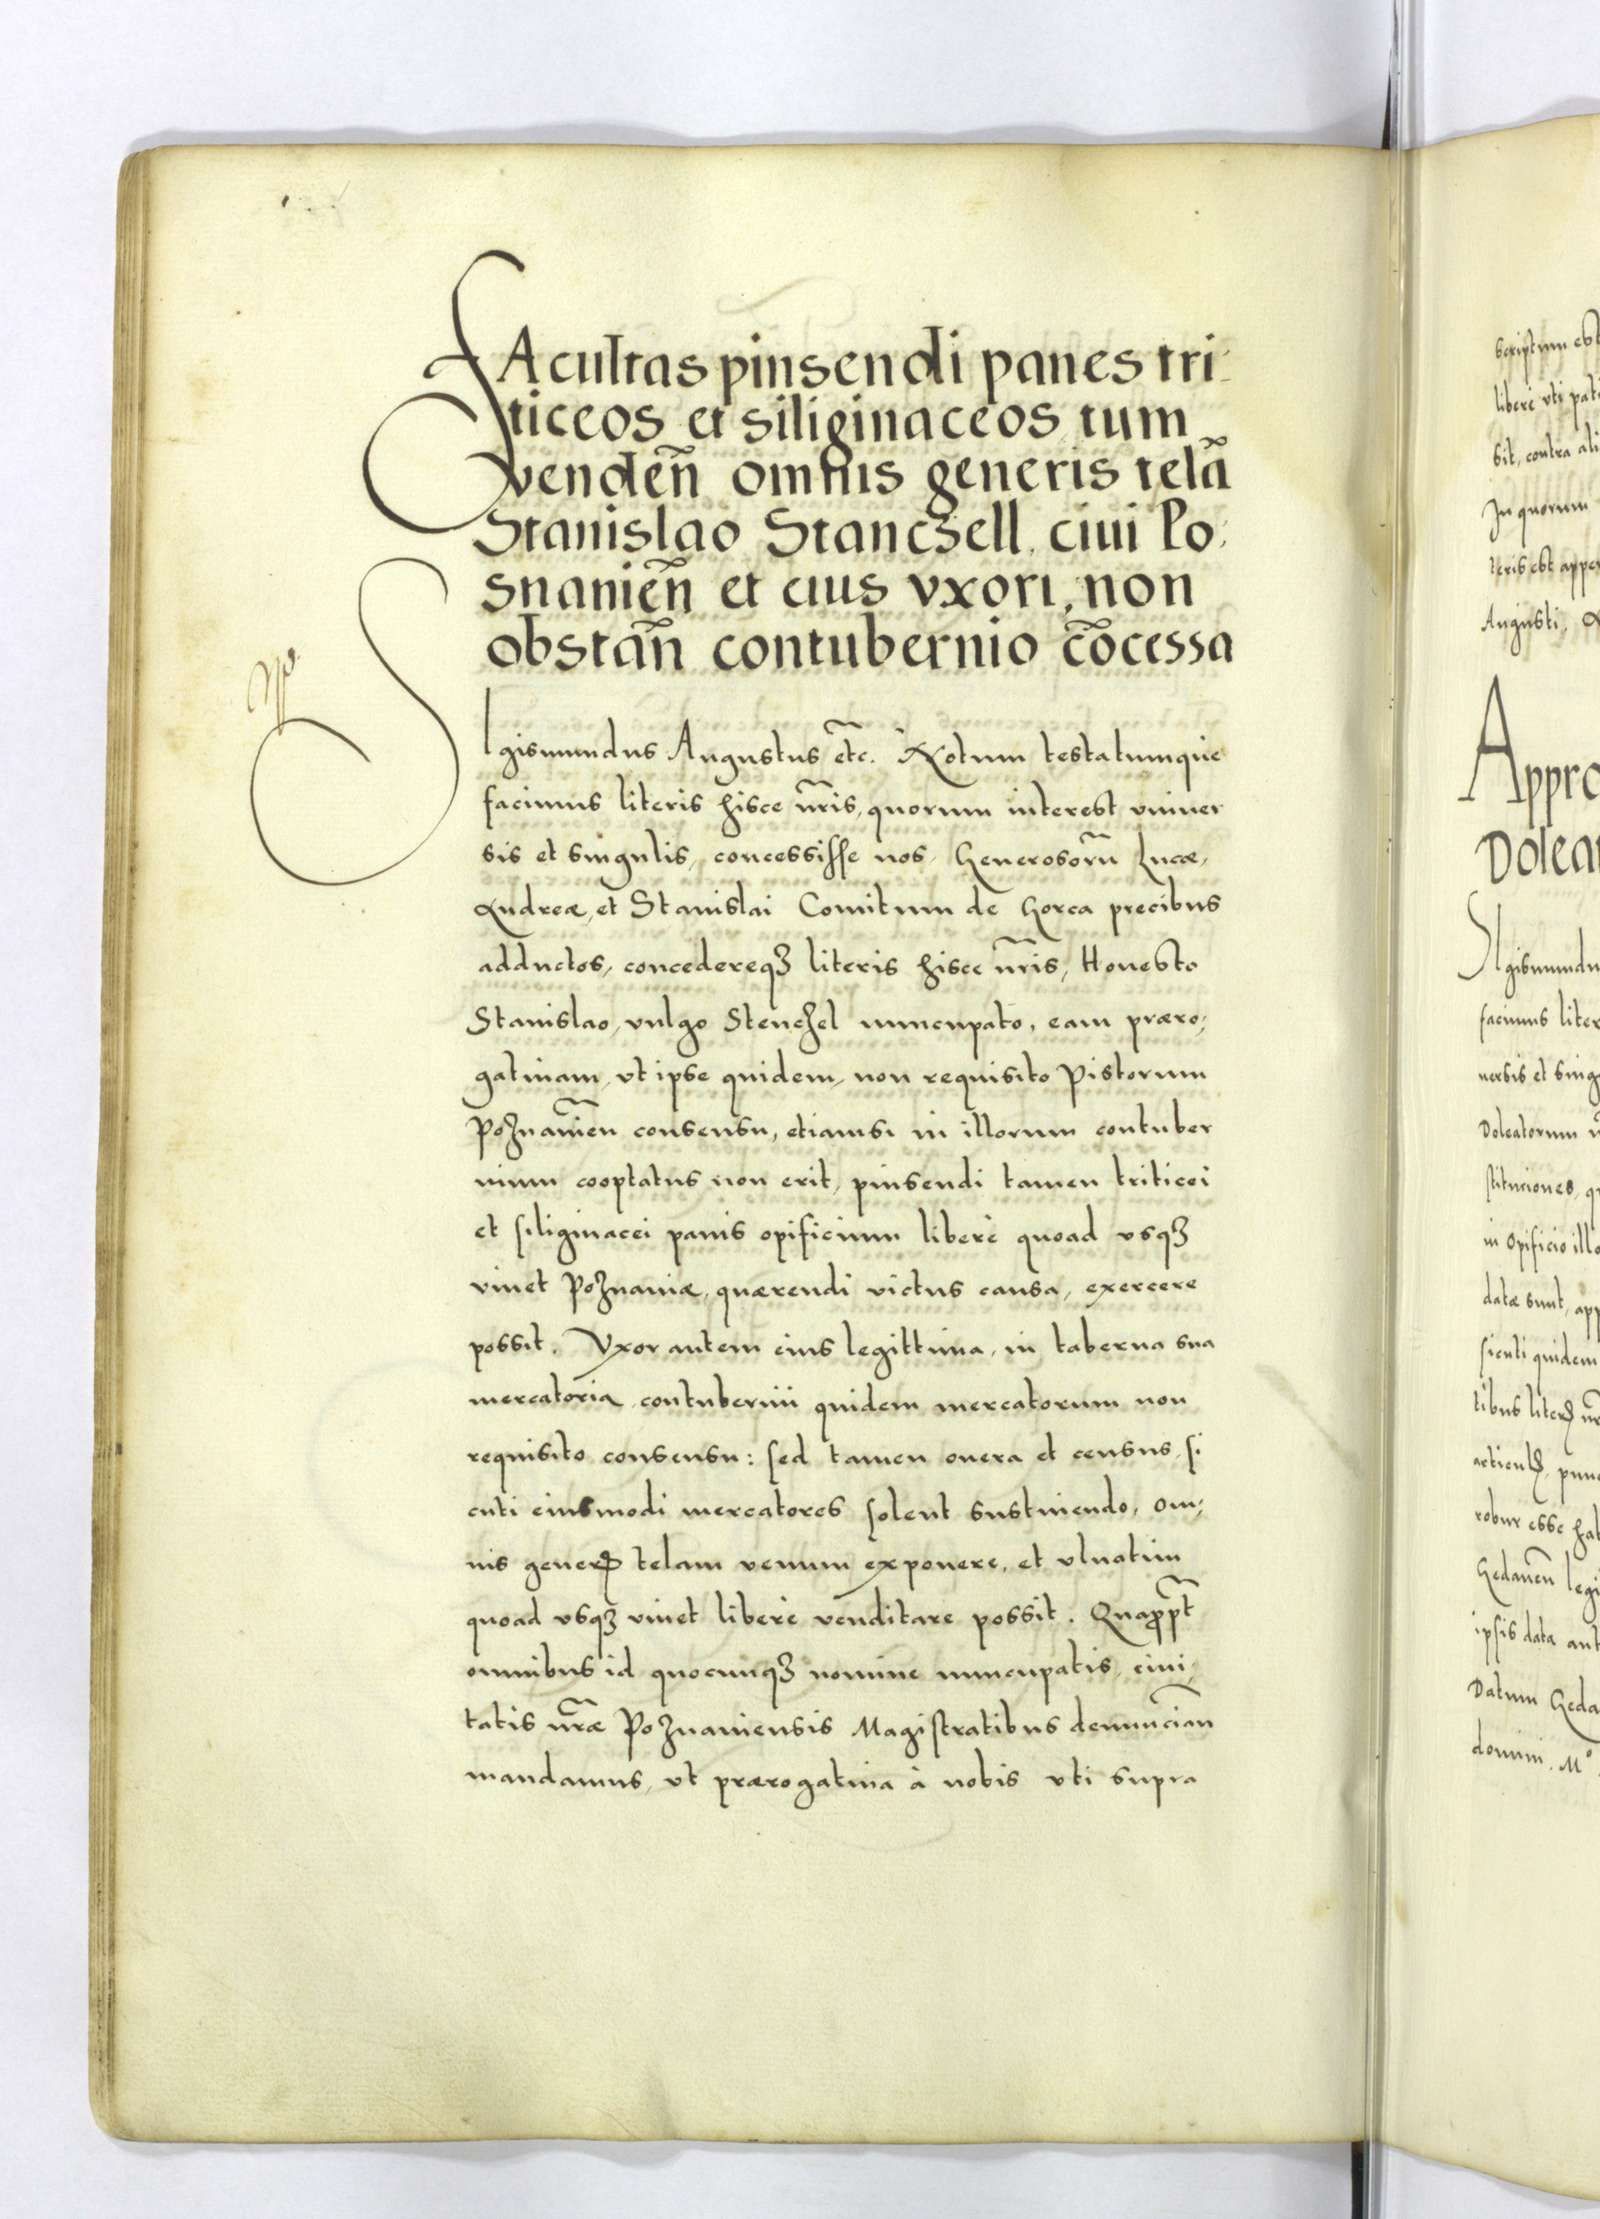 FAcultas pinsendi panes tri-
ticeos et siliginaceos, tum
vendeñ omnis generis telã
Stanislao Stanczell, ciui Po-
snanieñ et eius vxori, non
obstañ contubernio cõcessa
SIgismundus Augustus etc̃. Notum testatumque
facimus literis hisce nr̃is, quorum interest vniuer
sis et singulis, concessisse nos, Generosorũ Lucæ,
Andreæ, et Stanislai Comitum de Gorca precibus
adductos, concedereqȝ literis hisce nr̃is, Honesto
Stanislao, vulgo Stenczel nuncupato, eam præro-
gatiuam, vt ipse quidem, non requisito Pistorum
Poznanień consensu, etiamsi in illorum contuber
nium cooptatus non erit, pinsendi tamen triticei
et siliginacei panis opificium liberè quoad vsqȝ
viuet Poznaniæ, quærendi victus causa, exercere
possit. Vxor autem eius legittima, in taberna sua
mercatoria, contubernii quidem mercatorum non
requisito consensu: sed tamen onera et census, si
cuti eiusmodi mercatores solent sustinendo, om-
nis generꝭ telam venum exponere, et vlnatim
quoad vsqȝ viuet liberè venditare possit. Quaꝓpt̃
omnibus id quocunqȝ nomine nuncupatis, ciui-
tatis nr̃æ Poznaniensis Magistratibus denuncian̄
mandamus, vt prærogatiua à nobis vti supra
scriptum est
libere vti pati
sit, contra ali
In quorum
Augusti,
Appro
Dolea
SIgismundu
facimus liter
uersis et sing
Doleatorum
stituciones, q
in opificio illo
datæ sunt, app
sicuti quidem
tibus literꝭ nr̃
articulꝭ, punc
robur esse hab
Gedaneñ legi
ipsis data ant
Datum Geda
domini. Mº